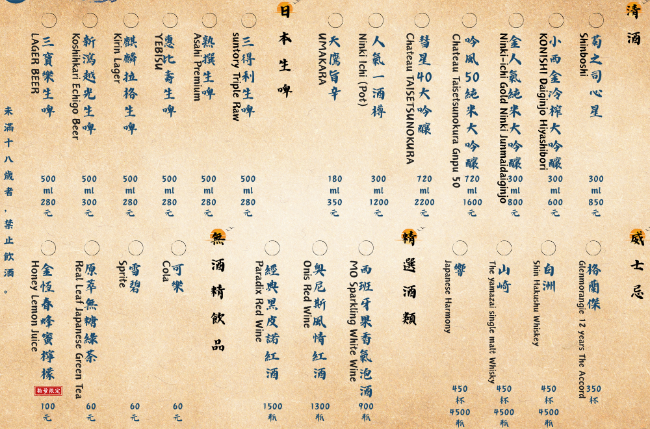 清酒
菊之司心星
Shinboshi
300
ml
850
元
小西金冷搾大吟釀
KONISHI Daiginjo Hiyashibori
300
ml
600
元
金人氣純米大吟釀
Ninki-ichi Gold Ninki Junmaidaiginjo
300
ml
800
元
吟風50純米大吟釀
Chateau Taisetsunokura Gnpu 50
720
ml
1600
元
彗星40大吟釀
Chateau TAISETSUNOKURA
720
ml
2200
元
人氣一酒樽
Ninki Ichi (Pot)
300
ml
1200
元
大鷹旨辛
UMAKARA
180
ml
350
元
日本生啤
三得利生啤
suntory Triple Raw
500
ml
280
元
熟撰生啤
Asahi Premium
500
ml
280
元
惠比壽生啤
YEBISU
500
ml
280
元
麒麟拉格生啤
Kirin Lager
500
ml
280
元
新瀉越光生啤
Koshihkari Echigo Beer
500
ml
300
元
三寶樂生啤
LAGER BEER
500
ml
280
元
威士忌
格蘭傑
Glenmorangie 12 years The Accord
350
杯
白洲
Shin Hakushu Whiskey
450
杯
4500
瓶
山崎
The yamazai single malt Whisky
450
杯
4500
瓶
響
Japanese Harmony
450
杯
4500
瓶
精選酒類
西班牙果香氣泡酒
MO Sparkling White Wine
900
瓶
奧尼斯風情紅酒
Onis Red Wine
1300
瓶
經典黑皮諾紅酒
Paradix Red Wine
1500
瓶
無酒精飲品
可樂
Cola
60
元
雪碧
Sprite
60
元
原萃無糖綠茶
Real Leaf Japanese Green Tea
60
元
金恆春蜂蜜檸檬
Honey Lemon Juice
數量限定
100
元
未滿十八歲者，禁止飲酒。